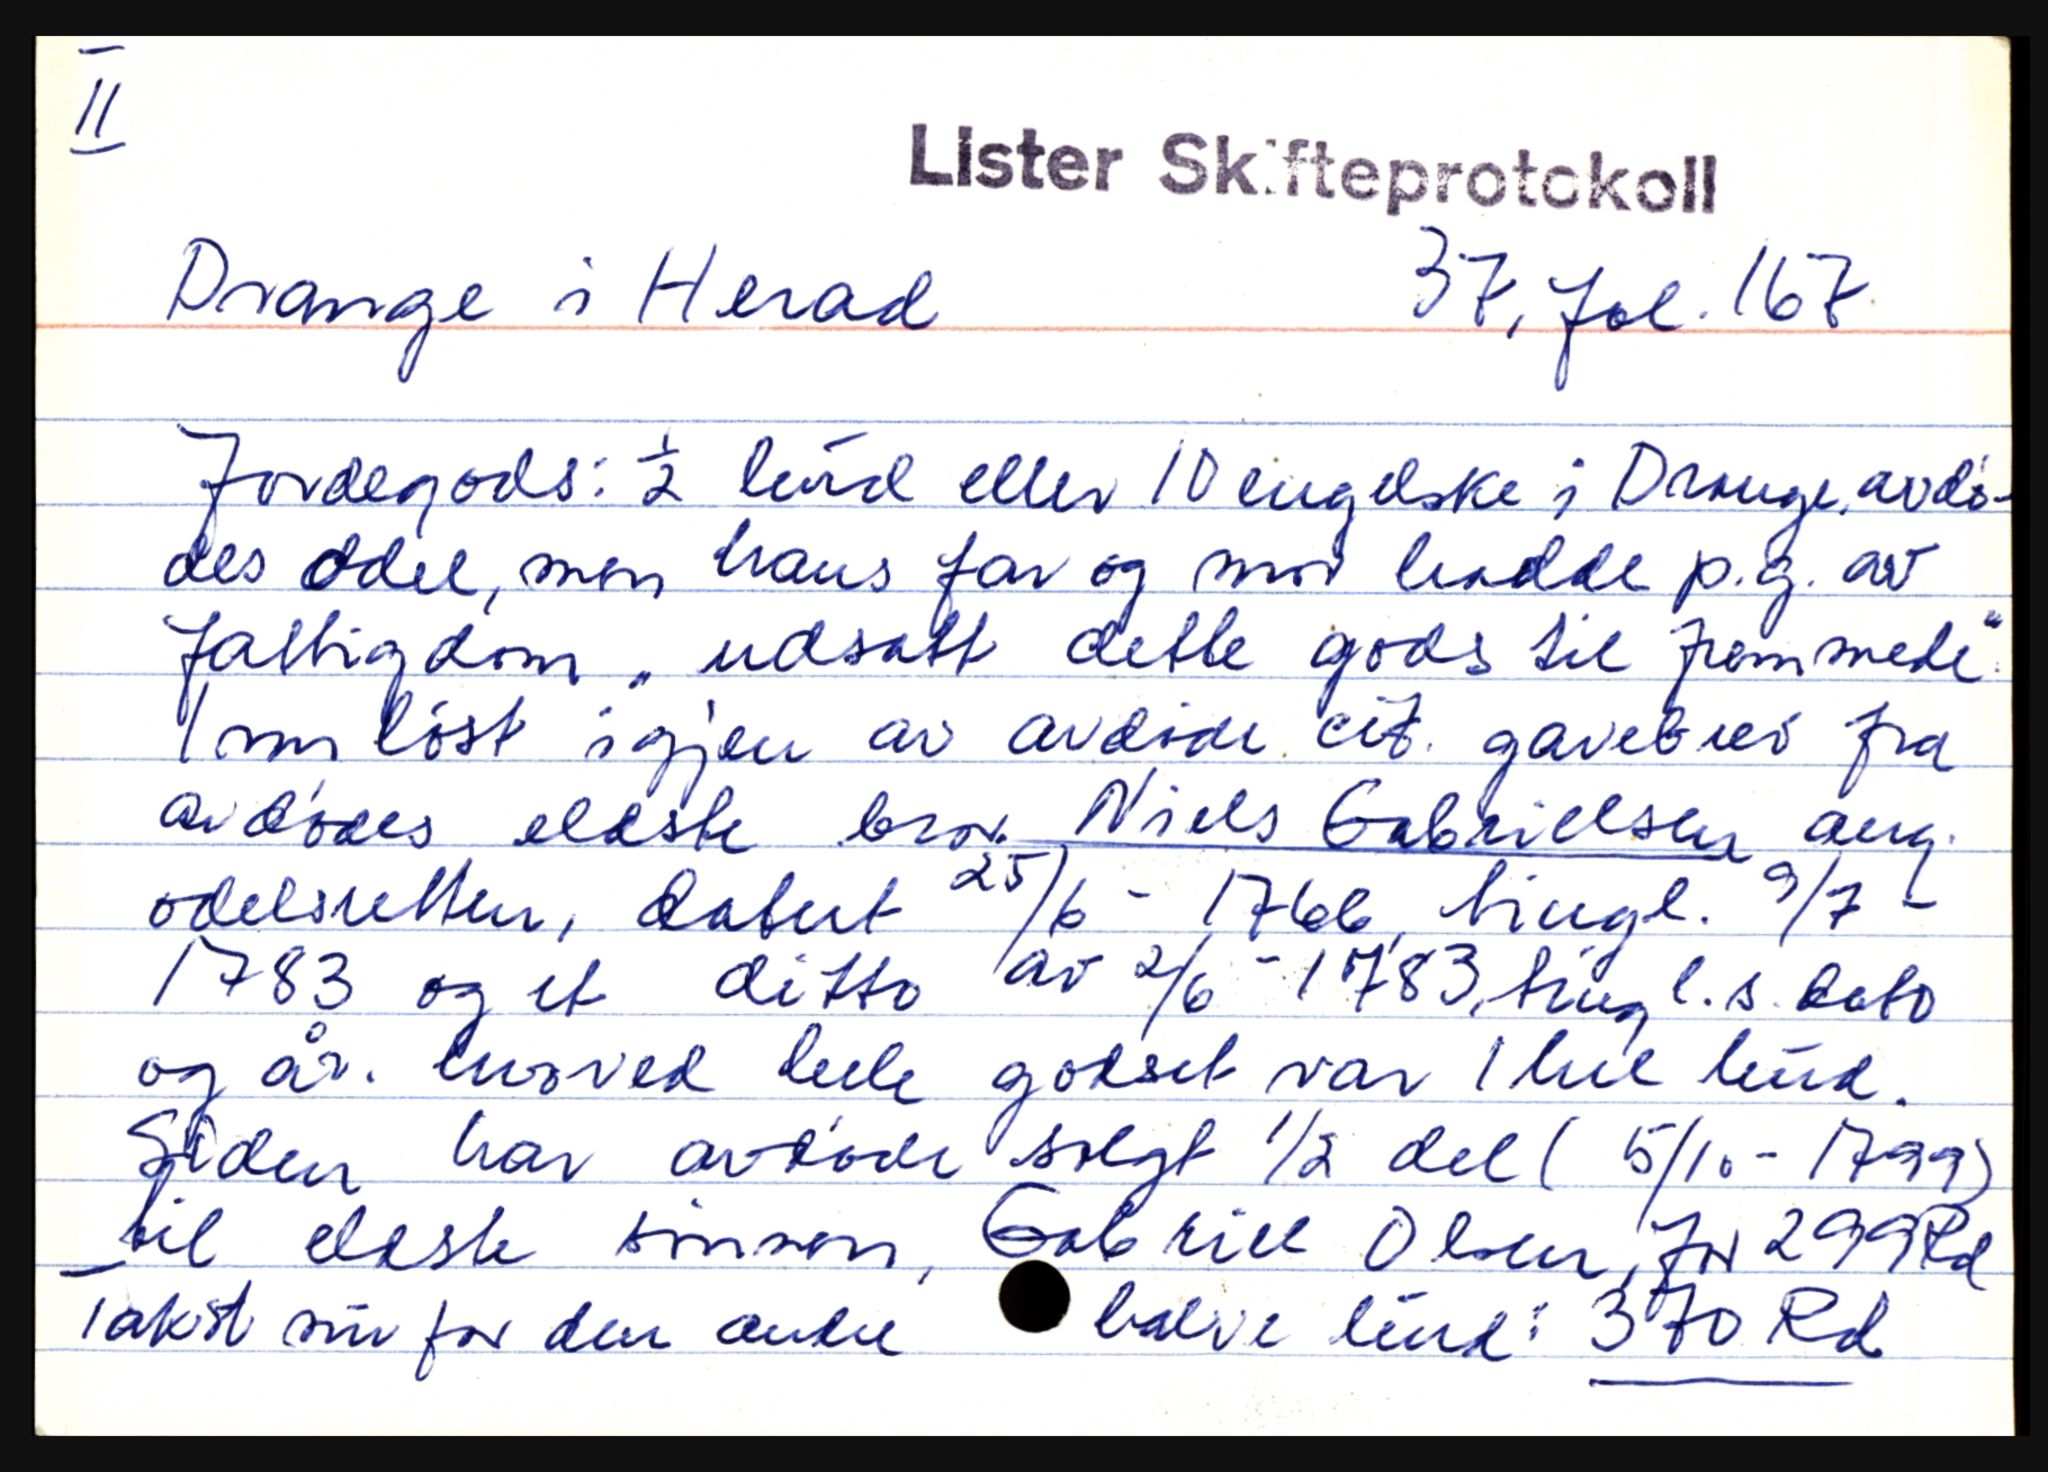 II
Lister Skifteprotokoll
Drange i Herad 37, fol. 167
Jordegods: 1/2 hud eller 10 engelske i Drange, avdø-
des odel, men hans far og mor hadde p.g. av
fattigdom „udsatt dette gods til fremmede“.
Innløst igjen av avdøde cit. gavebrev fra
avdødes eldste bror Niels Gabrielsen ang.
odelsretten, datert 25/6 - 1766, tingl. 9/7 -
1783 og et ditto av 2/6 - 1783, tingl. s. dato
og år. hvorved hele godset var 1 hel hud.
Siden har avdøde solgt 1/2 del (5/10 - 1799)
til eldste sønnen, Gabriel Olsen, for 299 Rd
Takst nu for den andre halve hud: 370 Rd